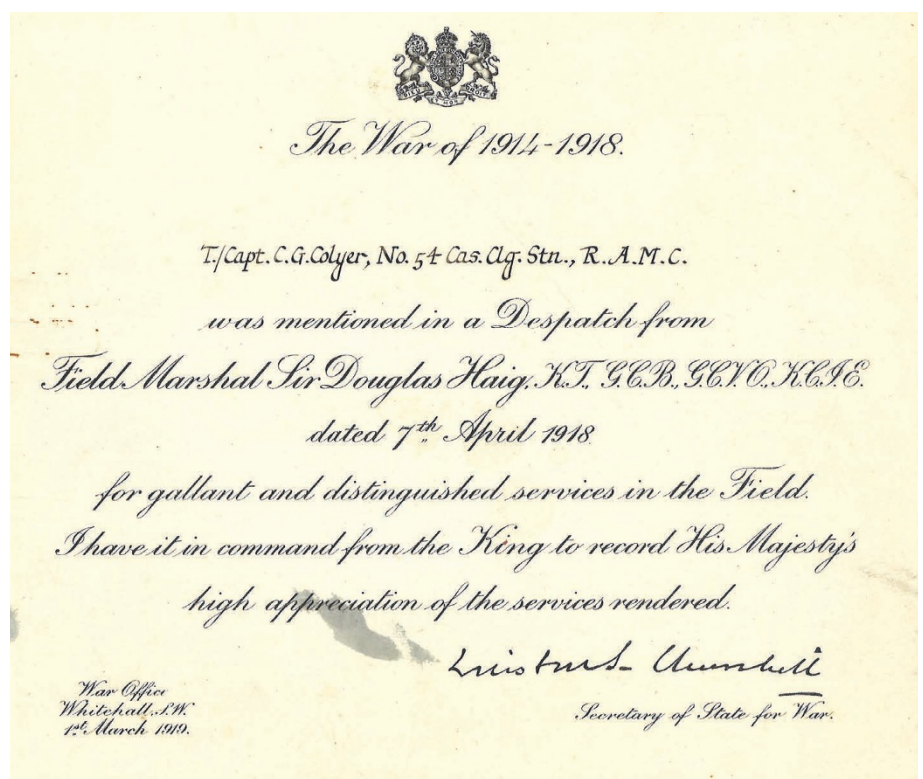 The War of 1914-1918.
T./Capt. C.G. Colyer, No. 54 Cas. Clg. Stn., R.A.M.C.
was mentioned in a Despatch from
Field Marshal Sir Douglas Haig, K.T. G.C.B., G.C.V.O, K.C.I.E.
dated 7th April 1918
for gallant and distinguished services in the Field.
I have it in command from the King to record His Majesty's
high appreciation of the services rendered.
Winston S. Churchill
War Office
Whitehall. S.W.
1st March 1919.
Secretary of State for War.